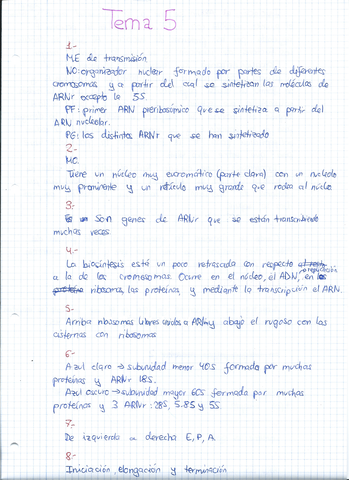 Tema 5
1-
ME de transmisión
NO: organizador nuclear formado por partes de diferentes
cromosomas y a partir del cual se sintetizan las moléculas de
ARNr excepto la 5S.
PF: primer ARN prerribosómico que se sintetiza a partir del
ARN nucleolar.
PG: los distintos ARNr que se han sintetizado
2-
MO.
Tiene un núcleo muy eucromático (parte clara) con un nucleolo
muy prominente y un retículo muy grande que rodea al núcleo
3-
Son genes de ARNr que se están transcribiendo
muchas veces
4-
La biosíntesis está un poco retrasada con respecto
a la de los cromosomas. Ocurre en el núcleo, el ADN, en
ribosomas, las proteínas, y mediante la transcripción el ARN.
5-
Arriba ribosomas libres unidos a ARNm y abajo el rugoso con las
cisternas con ribosomas
6-
Azul claro → subunidad menor 40S formada por muchas
proteínas y ARNr 18S.
Azul oscuro → subunidad mayor 60S formada por muchas
proteínas y 3 ARNr: 28S, 5.8S y 5S
7-
De izquierda a derecha E, P, A.
8-
Iniciación, elongación y terminación